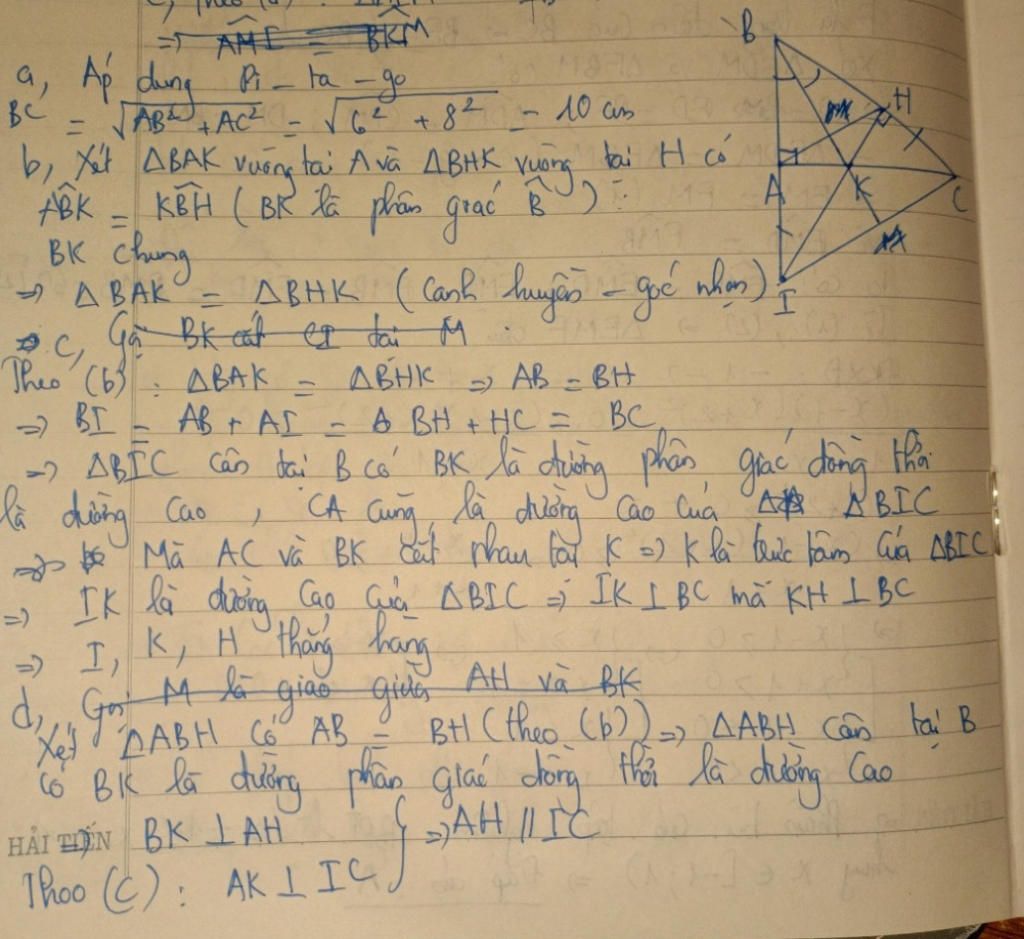 c, Theo (a) :
=> AMI = BKM
a, Áp dụng Pi - ta - go
BC = √AB² + AC² = √6² + 8² = 10 cm
b, Xét ΔBAK vuông tại A và ΔBHK vuông tại H có
ABK = KBH ( BK là phân giác B ) :
BK chung
=> ΔBAK = ΔBHK ( cạnh huyền - góc nhọn )
c, Gọi BK cắt CI tại M
Theo (b) : ΔBAK = ΔBHK => AB = BH
=> BI = AB + AI = BH + HC = BC
=> ΔBIC cân tại B có BK là đường phân giác đồng thời
là đường cao , CA cũng là đường cao của ΔBIC
=> Mà AC và BK cắt nhau tại K => K là trực tâm của ΔBIC
=> IK là đường cao của ΔBIC => IK ⊥ BC mà KH ⊥ BC
=> I, K, H thẳng hàng
d, Gọi M là giao giữa AH và BK
Xét ΔABH có AB = BH (theo (b)) => ΔABH cân tại B
có BK là đường phân giác đồng thời là đường cao
HẢI TIẾN => BK ⊥ AH } => AH // IC
Thoo (c) : AK ⊥ IC
B
H
A
K
C
M
I